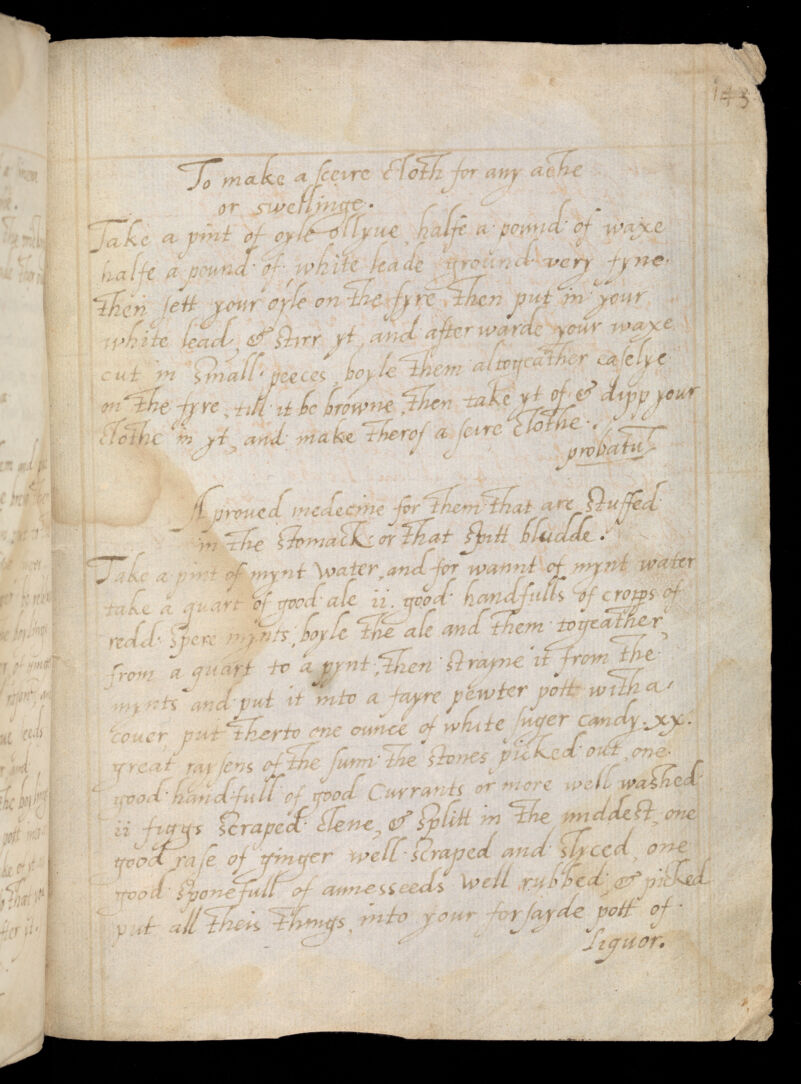 143
To make a sceire cloth for any ache
or swellinge.
Take a pint of oyle ollyve halfe a pound of waxe
halfe a pound of white leade ground very fyne
then sett your oyle on the fyre then put in your
white lead, & stirr yt, and afterwarde your waxe
cut in small peeces, boyle them altogeather easelye
on the fyre, till it be browne, then take yt of & dipp your
clothe in yt, and make therof a seire clothe.
probatu̅
A proued medecine for them that are stuffed
in the stomack or that spitt bludde.
Take a pint of mynt water, and for wannt of mynt water
take a quart of good ale ii. good handfulls of cropps of
redd spere mynts, boyle the ale and them togeather,
from a quart to a pynt, then strayne it from the
mynts and put it into a fayre pewter pott with a
cover, put therto one ounce of white suger candy. xx.
great raysens of the sunn the stones picked out, one
good handfull of good Currants or more well washed
ii figgs scraped clene, & splitt in the middest, one
good rase of ginger well scraped and slyced, one
good sponefull of annesseeds well rubbed, & picked
put all theis things, into your forsayde pott of
liquor.